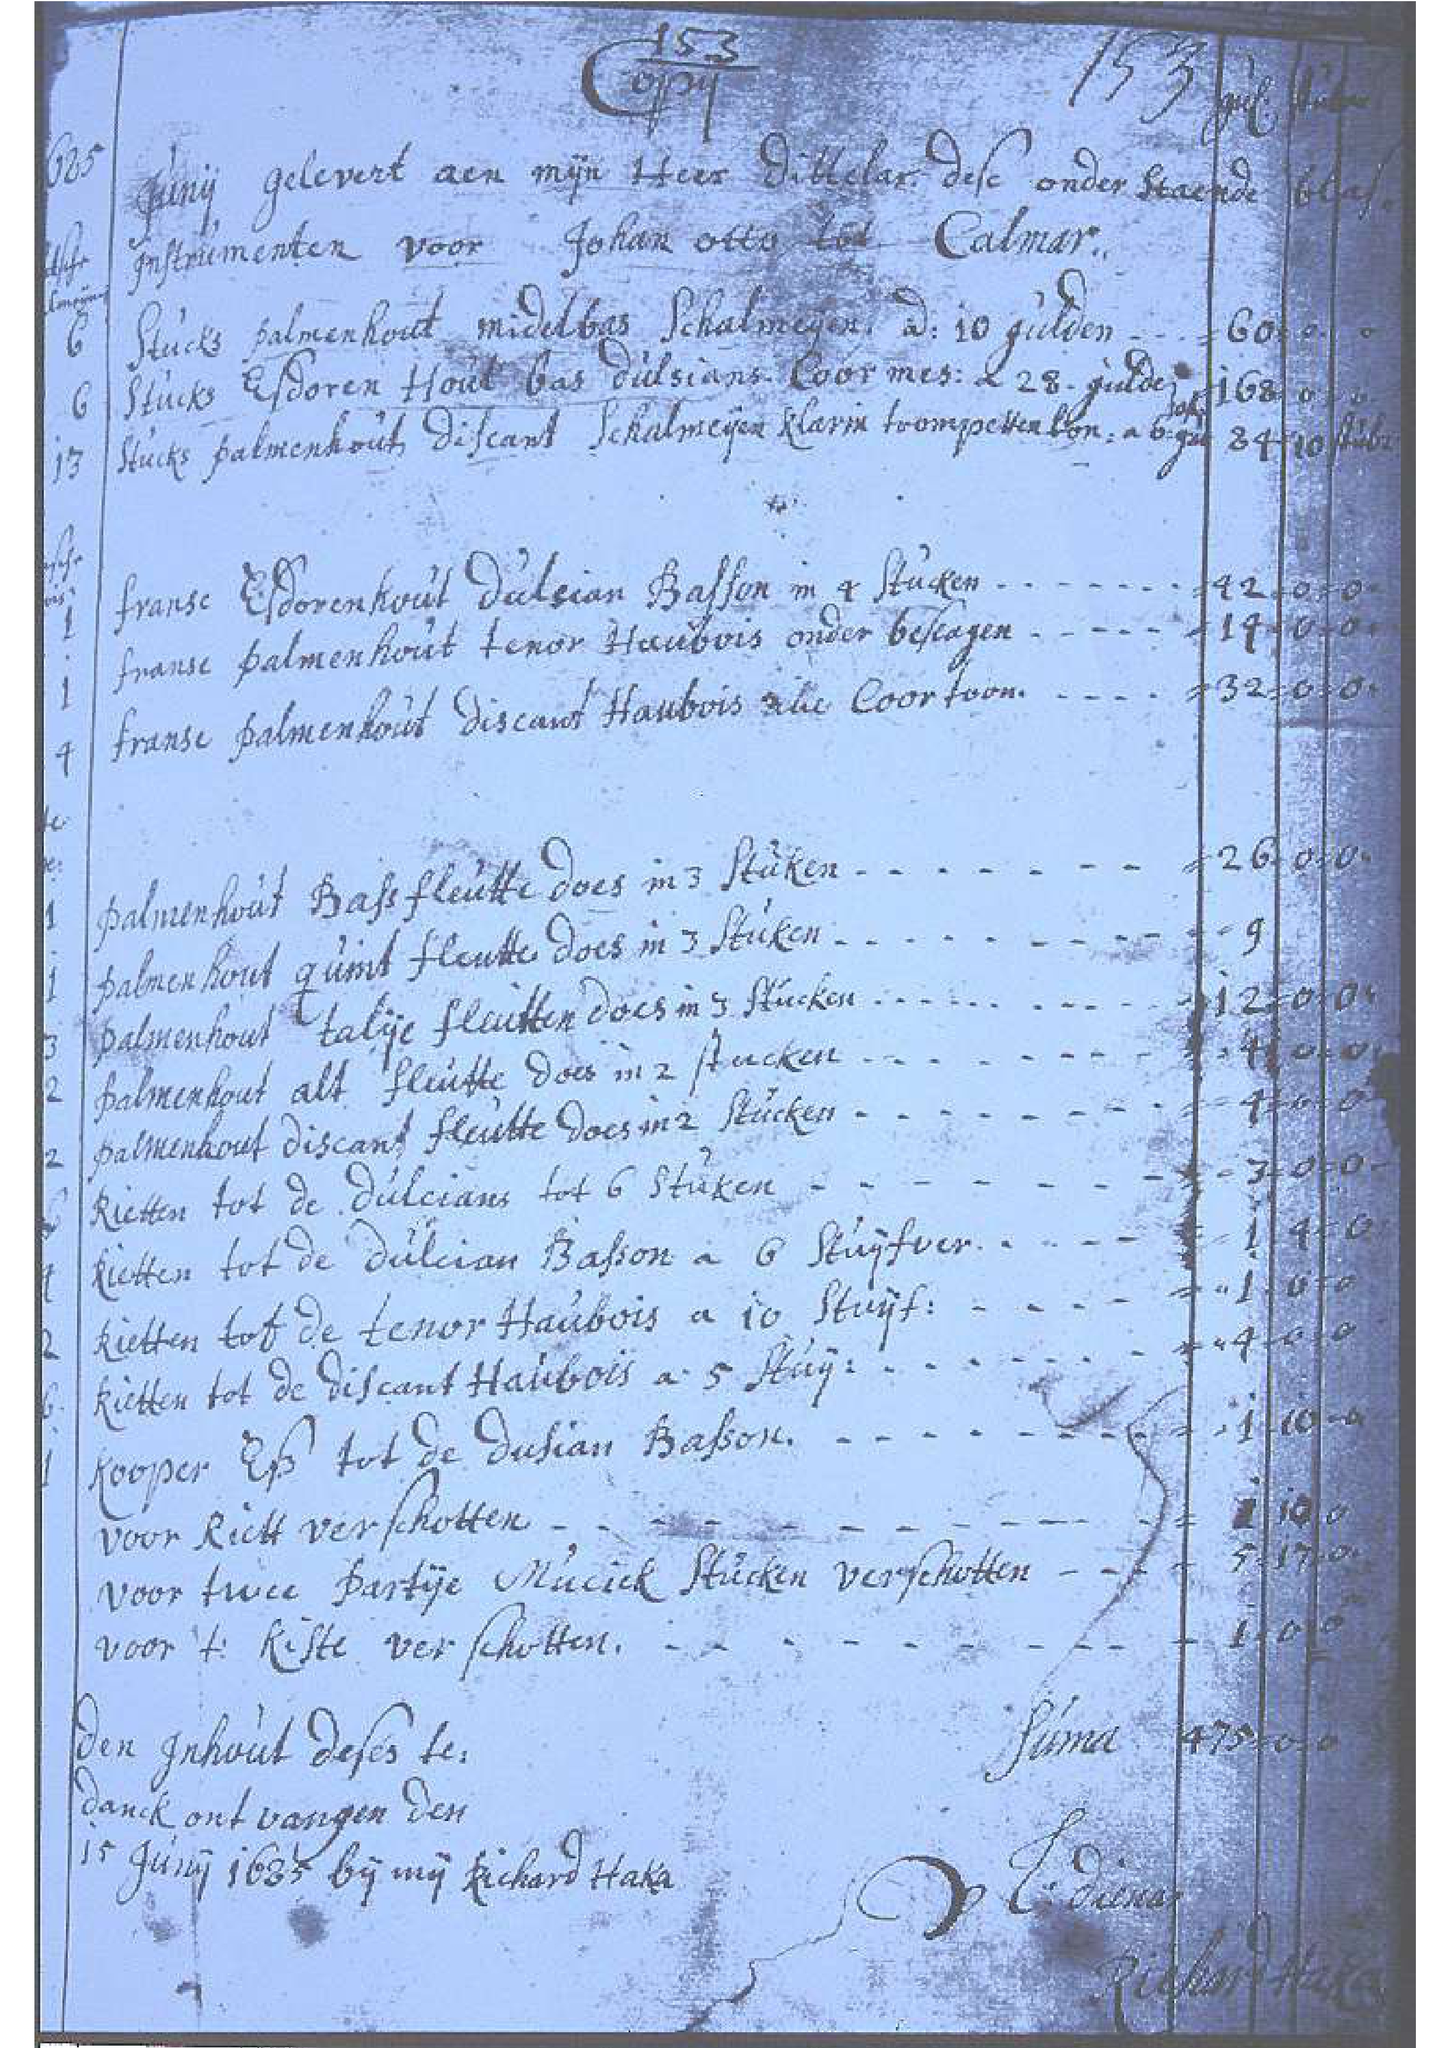 153
Copij
153
gul. stuv
685 Junij gelevert aen mijn Heer Dittelar. dese onder staende blas.
Instrumenten voor Johan otto tot Calmar.
6 Stucks palmenhout midelbas Schalmeyen. a: 10 gulden - - - = 60 = 0 - 0
6 Stucks Esdoren Hout bas dulsians. Coormes: a 28- gulden = 168 = 0 - 0
13 Stucks palmenhout discant Schalmeyen klarin trompetten ton: a 6 gu 10 stu 84 = 10 stuv
1 franse Esdorenhout dulsian Basson in 4 Stucken - - - - - - - = 42 = 0 = 0 -
1 franse palmenhout tenor Haubois onder beslagen - - - - - - = 14 = 0 - 0 -
4 franse palmenhout discant Haubois alle Coortoon. - - - - - = 32 = 0 = 0 -
1 palmenhout Bass fleutte does in 3 Stuken - - - - - - - = 26 = 0 = 0 -
1 palmenhout quint fleutte does in 3 Stuken - - - - - - - - - = - 9
3 palmenhout talije fleutten does in 3 Stucken - - - - - - - 12 = 0 = 0 -
2 palmenhout alt fleutte does in 2 stucken - - - - - - - - 4 = 0 = 0 -
2 palmenhout discant fleutte does in 2 Stucken - - - - - - - = - 4 = 0 = 0
Rietten tot de dulcians tot 6 Stuken - - - - - - - - - 3 = 0 = 0 -
4 Rietten tot de dulcian Basson a 6 Stuijfver. - - - - - = - 1 - 4 = 0
2 Rietten tot de tenor Haubois a 10 Stuijf: - - - - - = - 1 - 0 = 0
6. Rietten tot de discant Haubois a 5 Stuij: - - - - - - - = - 4 = 0 = 0
1 kooper Ess tot de dusian Basson. - - - - - - - - = - 1 - 10 - 0
voor Riett verschotten - - - - - - - - - - - - - = 1 10 0
voor twee partije Muciek Stucken verschotten - - - - 5 = 17 = 0 -
voor 't kiste verschotten. - - - - - - - - - - - 1 - 0 = 0
den Inhout deses te:
suma 475 = 0 = 0
danck ont vangen den
15 Junij 1685 bij mij Richard Haka
E: dienar
Richard Haka